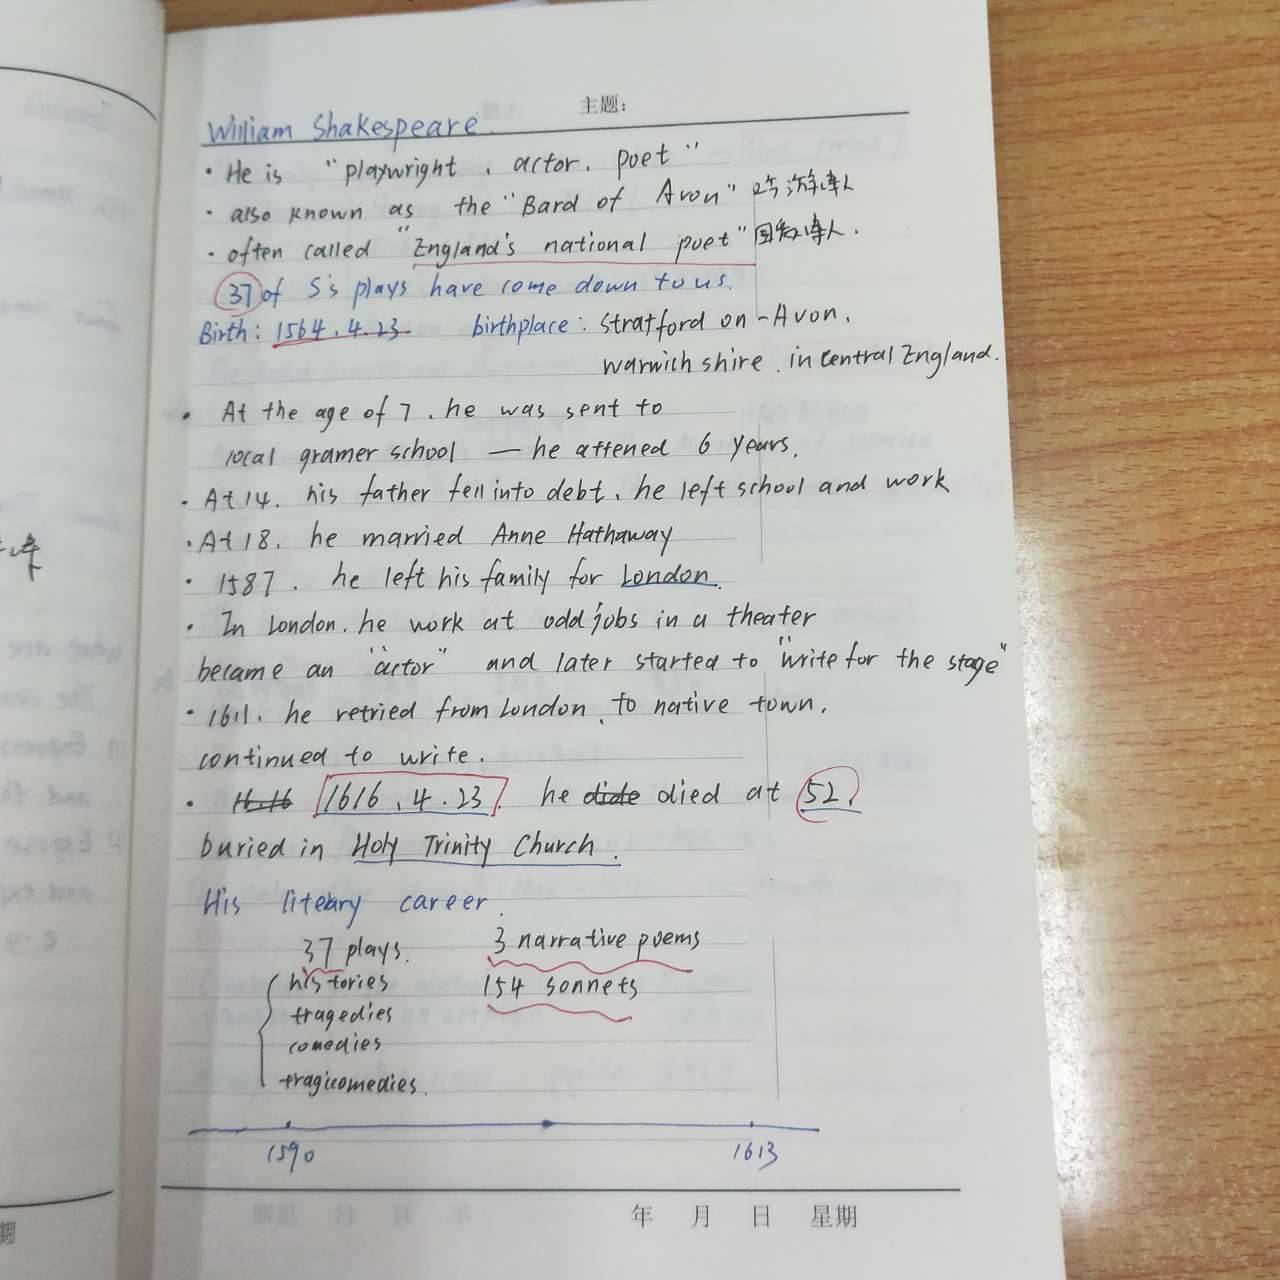 主题:
William Shakespeare.
· He is "playwright, actor, poet"
· also known as the "Bard of Avon" 吟游诗人
· often called "England's national poet" 国家诗人.
37 of S's plays have come down to us.
Birth: 1564.4.23 birthplace: Stratford on-Avon,
warwich shire, in central England.
· At the age of 7, he was sent to
local gramer school — he attened 6 years.
· At 14, his father fell into debt, he left school and work
· At 18, he married Anne Hathaway
· 1587, he left his family for London.
· In London, he work at odd jobs in a theater
became an "actor" and later started to "write for the stage"
· 1611, he retried from London, to native town,
continued to write.
· 16.16 1616.4.23, he dide died at 52,
buried in Holy Trinity Church.
His liteary career.
37 plays. 3 narrative poems
histories 154 sonnets
tragedies
comedies
tragicomedies.
1590 1613
年 月 日 星期